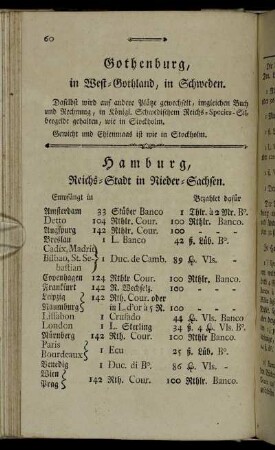 60
Gothenburg,
in West-Gothland, in Schweden.
Daselbst wird auf andere Plätze gewechselt, imgleichen Buch
und Rechnung, in Königl. Schwedischem Reichs-Species-Sil-
bergelde gehalten, wie in Stockholm.
Gewicht und Ehlenmaas ist wie in Stockholm.
Hamburg,
Reichs-Stadt in Nieder-Sachsen.
Empfängt in Bezahlet dafür
Amsterdam 33 Stüber Banco 1 Thlr. à 2 Mr. Bº.
Detto 104 Rthlr. Cour. 100 Rthlr. Banco.
Augspurg 142 Rthlr. Cour. 100 - - - -
Breslau 1 L. Banco 42 ß. Lüb. Bº.
Cadix, Madrid
Bilbao, St. Se- 1 Duc. de Camb. 89 Vls. Banco
bastian
Copenhagen 124 Rthlr Cour. 100 Rthlr. Banco.
Frankfurt 142 R. Wechselz. 100 - - - -
Leipzig 142 Rth. Cour. oder 100 - - - -
Naumburg in L.d'or à 5 R.
Lissabon 1 Crusado 44 Vls. Banco
London 1 L. Sterling 34 ß. 4 Vls. Bº.
Nürnberg 142 Rth. Cour. 100 Rthlr Banco.
Paris 1 Ecu 25 ß. Lüb. Bº.
Bourdeaux
Venedig 1 Duc. di Bº. 86 Vls. -
Wien 142 Rth. Cour. 100 Rthlr. Banco.
Prag